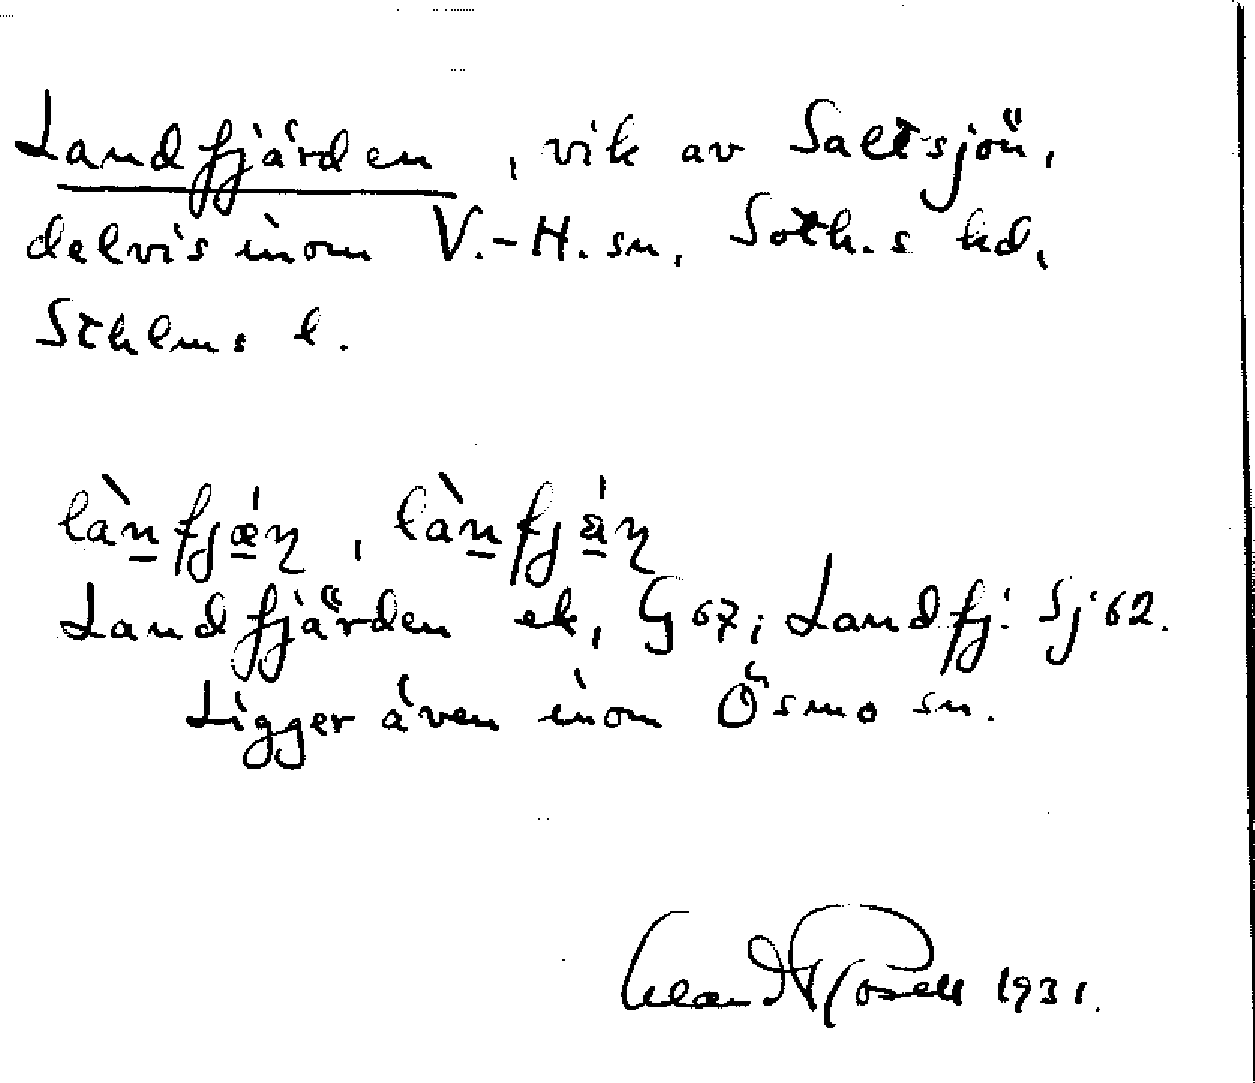 Landfjärden, vik av Saltsjön,
delvis inom V.-H. sn, Soth.s hd,
Sthlms l.
là̀n̲fjǽ̲ɳ, là̀n̲fjä̲́ɳ
Landfjärden ek, G 67; Landfj: Sj 62.
Ligger även inom Ösmo sn.
1931.